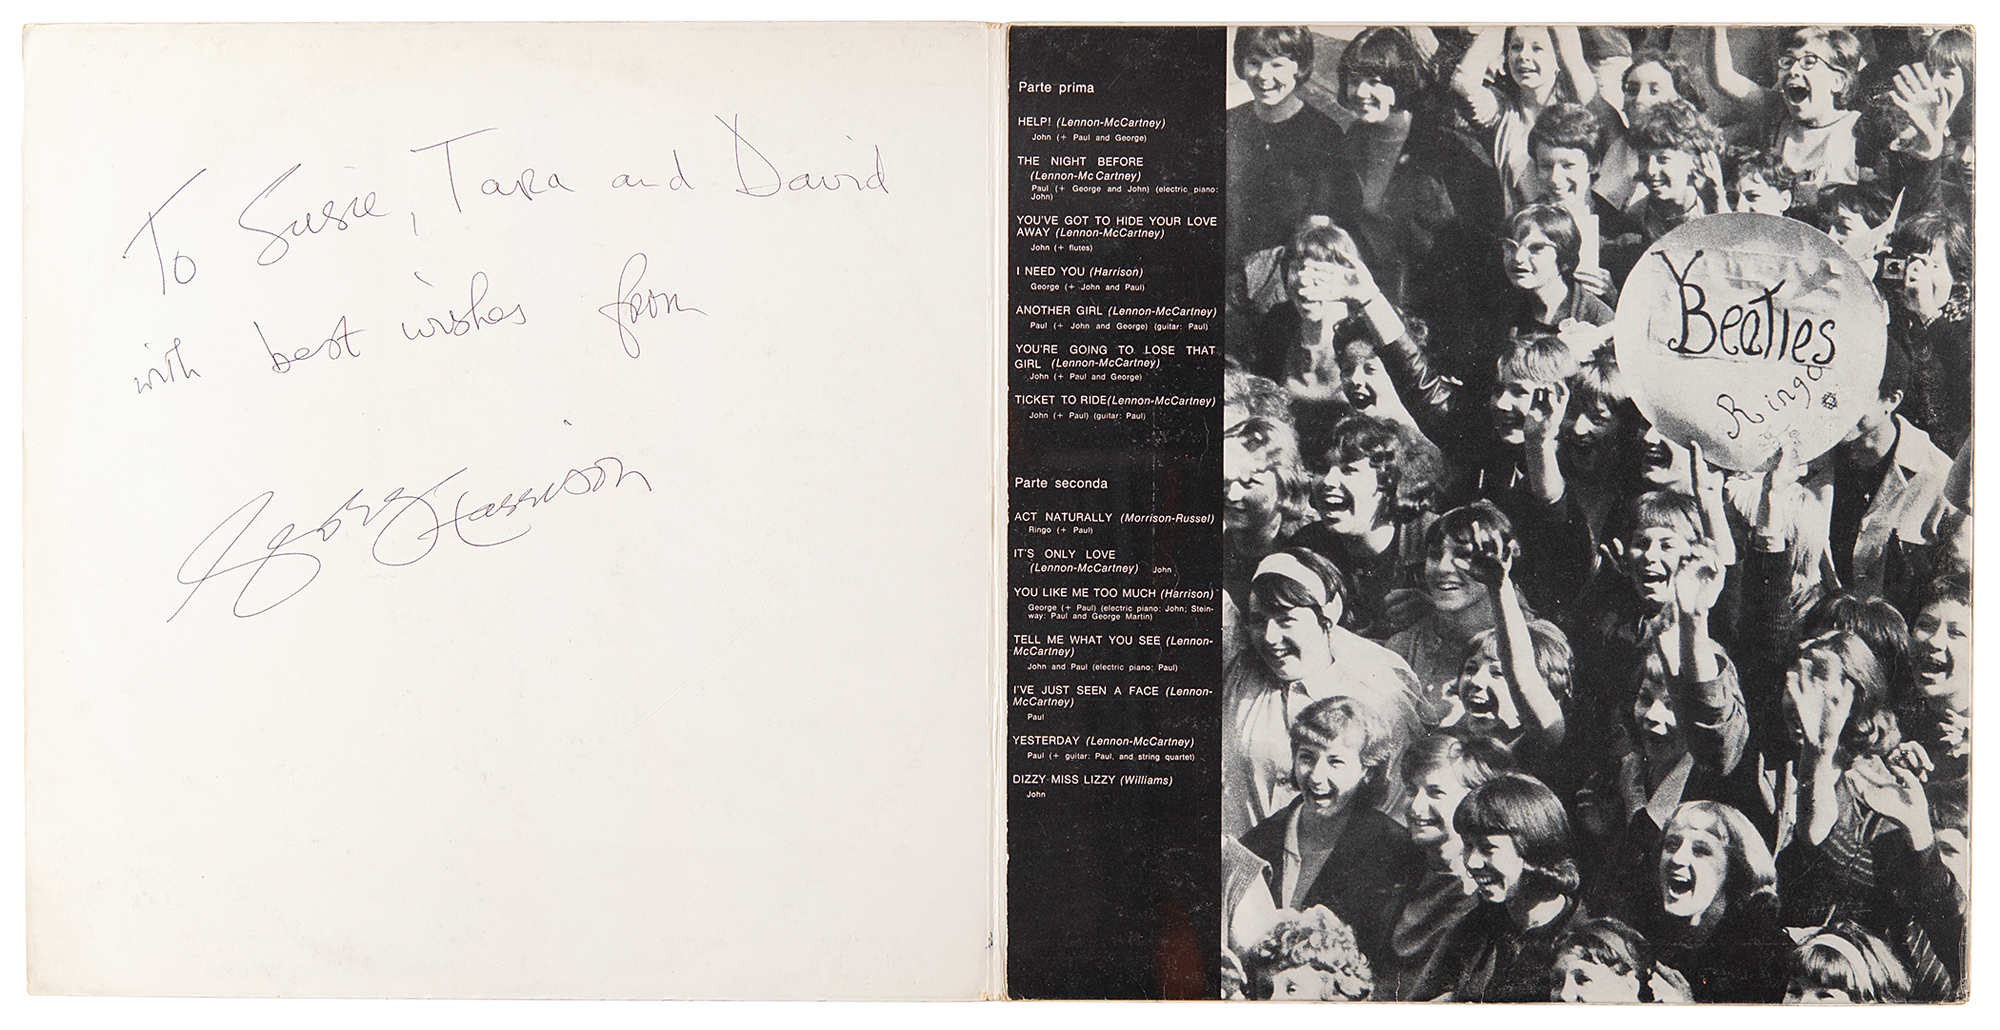 To Susie, Tara and David
with best wishes from
George Harrison
Parte prima
HELP! (Lennon-McCartney)
John (+ Paul and George)
THE NIGHT BEFORE
(Lennon-Mc Cartney)
Paul (+ George and John) (electric piano:
John)
YOU'VE GOT TO HIDE YOUR LOVE
AWAY (Lennon-McCartney)
John (+ flutes)
I NEED YOU (Harrison)
George (+ John and Paul)
ANOTHER GIRL (Lennon-McCartney)
Paul (+ John and George) (guitar: Paul)
YOU'RE GOING TO LOSE THAT
GIRL (Lennon-McCartney)
John (+ Paul and George)
TICKET TO RIDE(Lennon-McCartney)
John (+ Paul) (guitar: Paul)
Parte seconda
ACT NATURALLY (Morrison-Russel)
Ringo (+ Paul)
IT'S ONLY LOVE
(Lennon-McCartney) John
YOU LIKE ME TOO MUCH (Harrison)
George (+ Paul) (electric piano: John; Stein-
way: Paul and George Martin)
TELL ME WHAT YOU SEE (Lennon-
McCartney)
John and Paul (electric piano: Paul)
I'VE JUST SEEN A FACE (Lennon-
McCartney)
Paul
YESTERDAY (Lennon-McCartney)
Paul (+ guitar: Paul, and string quartet)
DIZZY MISS LIZZY (Williams)
John
Beatles
Ringo